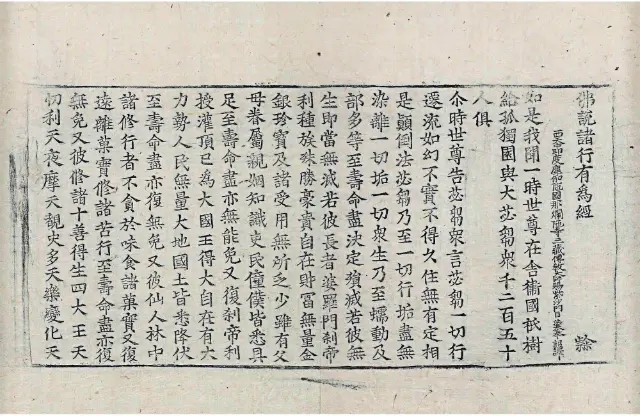 佛說諸行有爲經 㱔
西天中印度摩伽陀國那爛陀寺三藏傳教大師賜紫沙門臣法天奉 詔譯
如是我聞一時世尊在舍衛國祇樹
給孤獨園與大苾芻衆千二百五十
人俱
尒時世尊告苾芻衆言苾芻一切行
遷流如幻不實不得久住無有定相
是顚倒法苾芻乃至一切行垢盡無
染離一切垢一切衆生乃至蠕動及
部多等至壽命盡決定殞滅若彼無
生即當無滅若彼長者婆羅門刹帝
利種族殊勝豪貴自在財冨無量金
銀珍寶及諸受用無所乏少雖有父
母眷屬親姻知識吏民僮僕皆悉具
足至壽命盡亦無能免又復刹帝利
授灌頂已爲大國王得大自在有大
力勢人民無量大地國土皆悉降伏
至壽命盡亦復無免又彼仙人林中
諸修行者不貪於味食諸菓實又復
遠離菓實修諸苦行至壽命盡亦復
無免又彼修諸十善得生四大王天
忉利天夜摩天覩史多天樂變化天